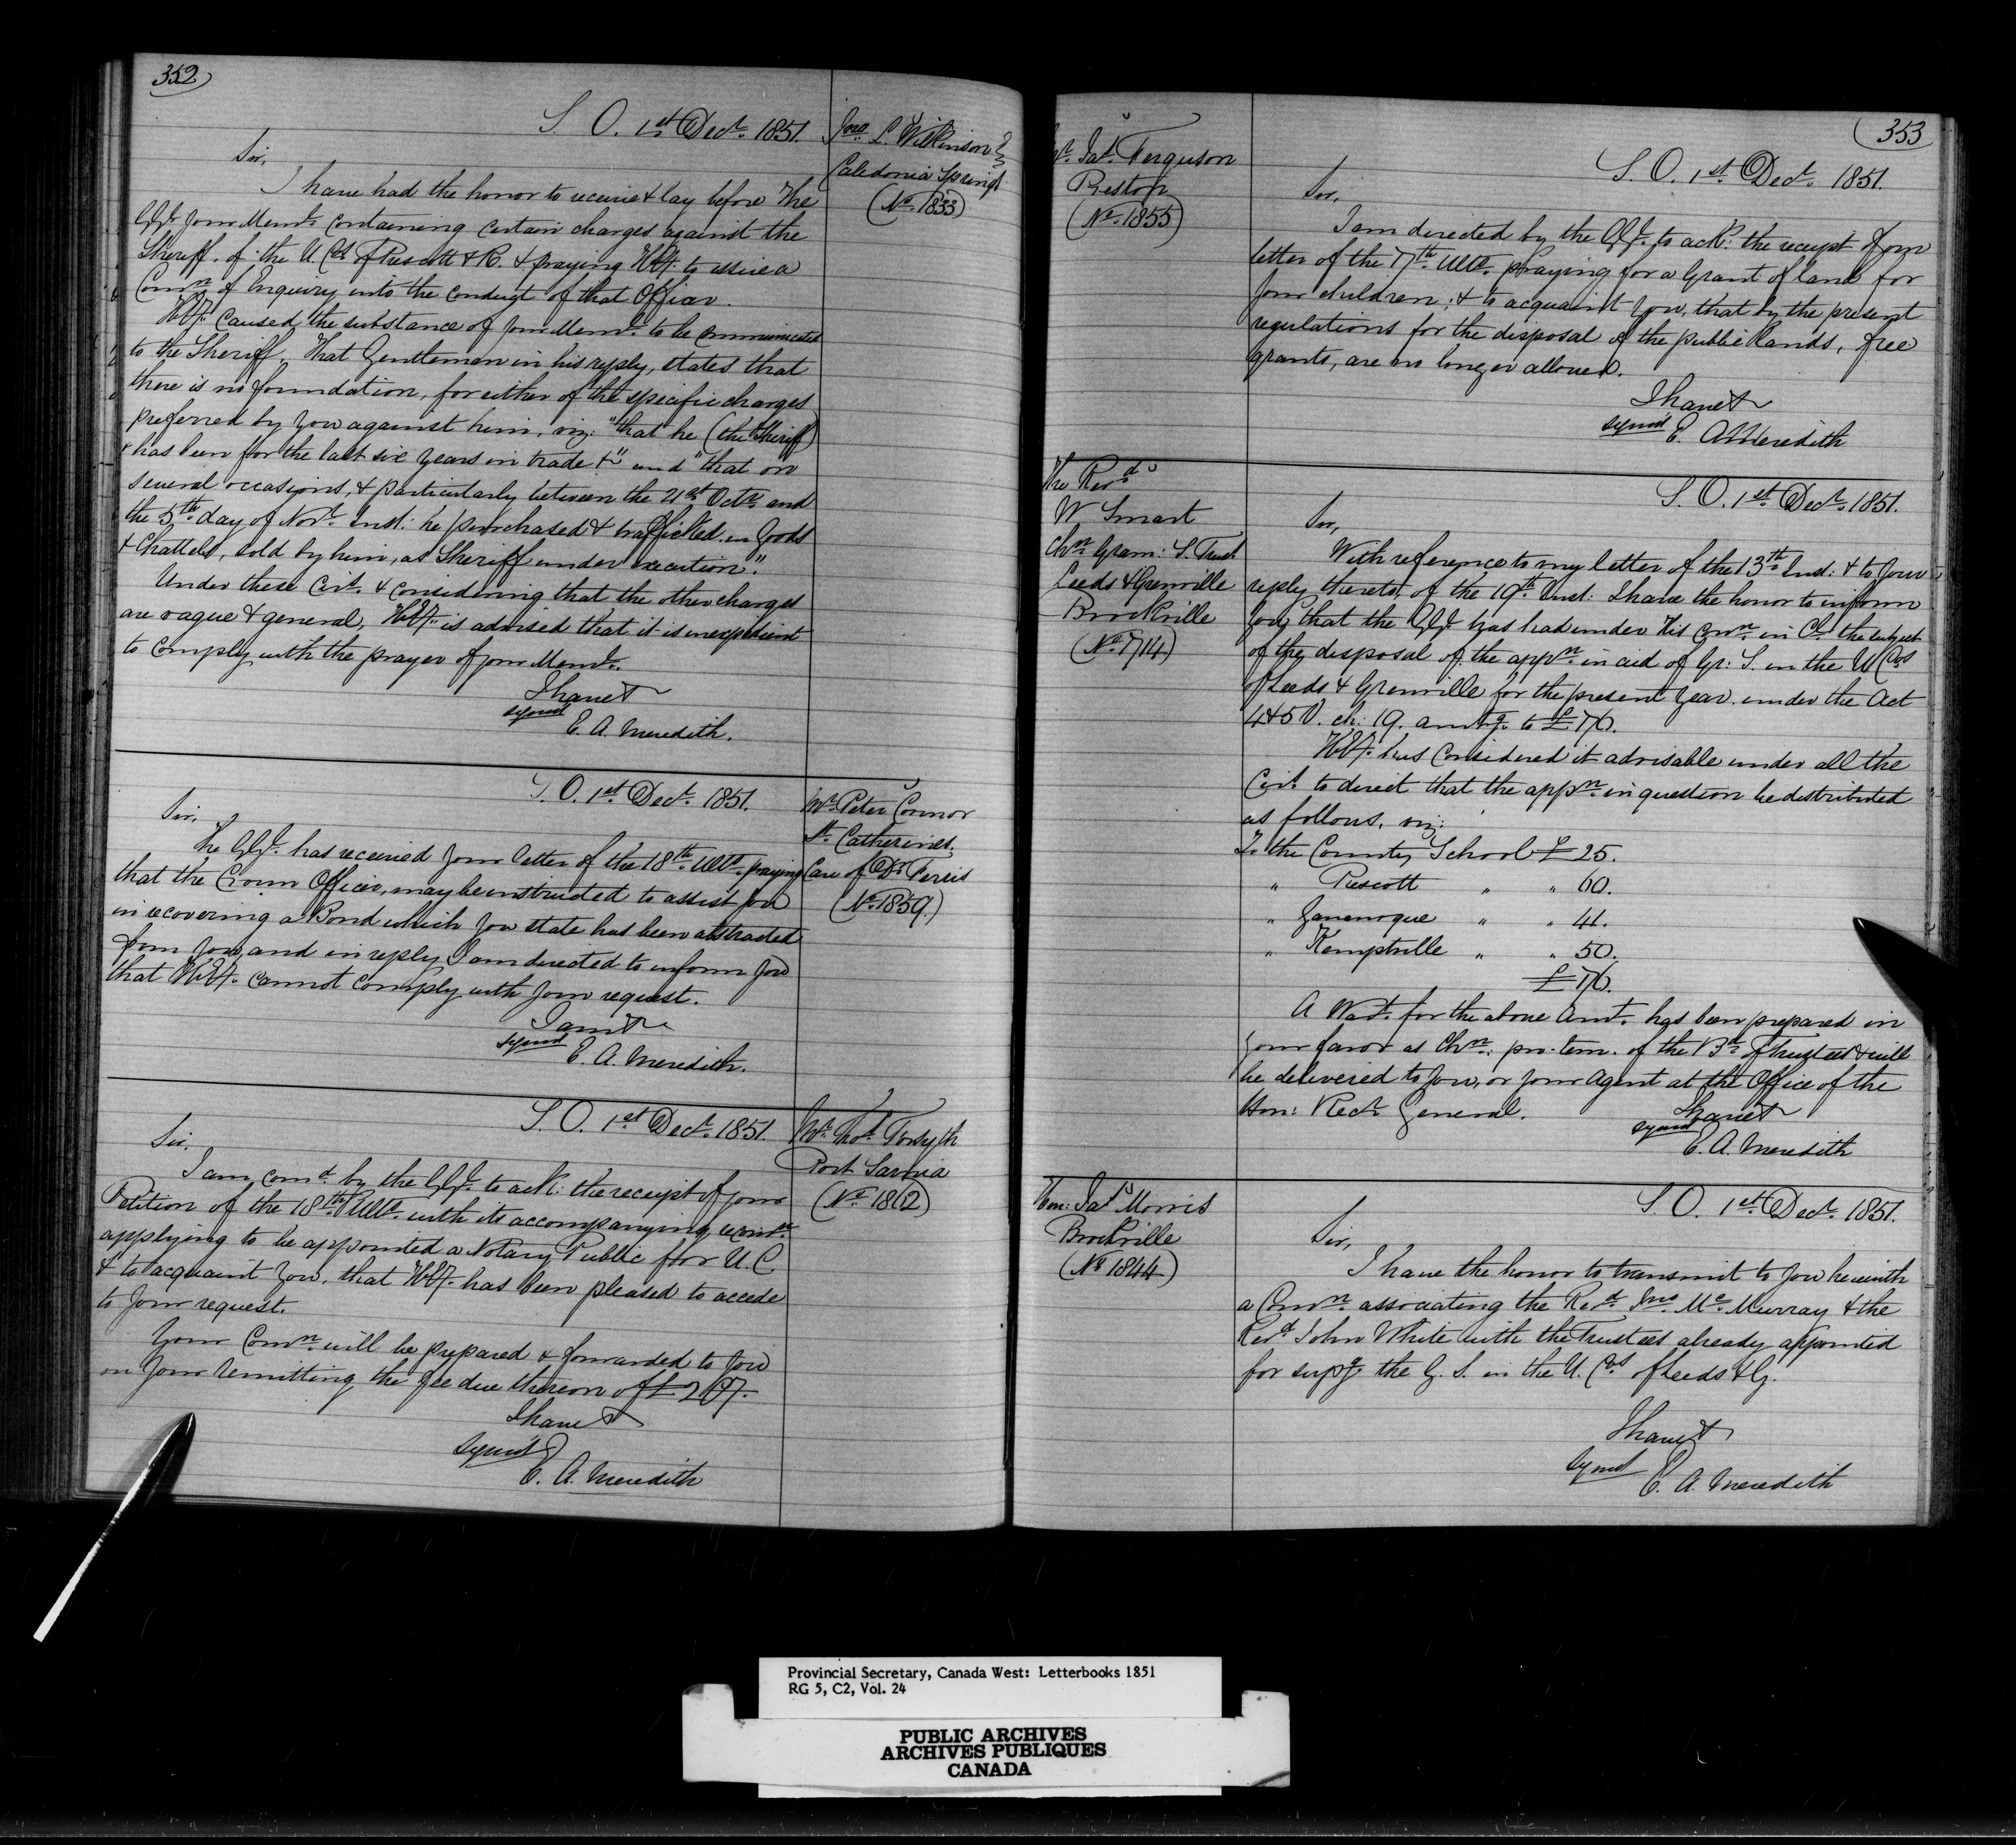 352
S. O. 1st Decr. 1851.
Jno. L. Wilkinson
Caledonia Springs
(No. 1833)
Sir,
I have had the honor to receive & lay before the
G.G. your Meml. containing certain charges against the
Sheriff. of the U. Cos. of Prescott & R. & praying H.E. to issue a
Comn. of Enquiry into the conduct of that Officer.
H.E. caused the substance of your Meml. to be communicated
to the Sheriff. That Gentleman in his reply, states that
there is no foundation, for either of the specific charges
preferred by you against him, viz: "that he (the Sheriff)
& has been for the last six years in trade &" and "that on
several occasions, & particularly between the 21st Octr. and
the 5th day of Novr. Inst: he purchased & trafficked in Goods
& Chattels, sold by him, as Sheriff under execution".
Under these Cirs. & considering that the other charges
are vague & general, H.E. is advised that it is inexpedient
to comply with the prayer of your Meml.
I have &
signed
E. A. Meredith.
S. O. 1st Decr. 1851.
Mr. Peter Connor
St. Catherines.
Care of Dr.
(No. 1859.)
Sir,
The G.G. has received your letter of the 18th Ulto. praying
that the Crown Officer, may be instructed to assist you
in recovering a Bond which you state has been abstracted
from you, and in reply I am directed to inform you
that H.E. cannot comply with your request.
I am &
signed
E. A. Meredith.
S. O. 1st Decr. 1851.
Mr. Thos. Forsyth
Port Sarnia
(No. 1862)
Sir,
I am comd. by the G.G. to ack: the receipt of your
Petition of the 18th Ulto. with its accompanying
applying to be appointed a Notary Public for U. C.
& to acquaint you, that H.E. has been pleased to accede
to your request.
Your Comn. will be prepared & forwarded to you
on your remitting the fee due thereon of £
I have &
signed
E. A. Meredith
353
Mr. Jas. Ferguson
Preston
(No. 1855)
S. O. 1st Decr. 1851.
Sir,
I am directed by the G.G. to ack: the receipt of your
letter of the 17th Ulto. praying for a Grant of land for
your children; & to acquaint you, that by the present
regulations for the disposal of the public lands, free
grants, are no longer allowed.
I have &
signed E. A. Meredith
The Revd.
W Smart
Chn. Gram: S. Trust
Leeds & Grenville
Brockville
(No. 1714)
S. O. 1st Decr. 1851.
Sir,
With reference to my letter of the 13th Inst: & to your
reply thereto, of the 19th Inst: I have the honor to inform
you, that the G.G. has had under His Conn. in Cl. the subject
of the disposal of the appn. in aid of Gr: S. in the U Cos
of Leeds & Grenville for the present year under the Act
4 & 5 V. ch: 19. amtg. to £176.
H.E. has considered it advisable under all the
Cirs. to direct that the appn. in question be distributed
as follows, viz:
To the County School £ 25.
" Prescott " " 60.
" Gananoque " " 41.
" Kemptville " " 50.
£176.
A Wart. for the above Amt. has been prepared in
your favor as Chn. pro: tem. of the Bd. of Trustees & will
be delivered to you, or your Agent at the Office of the
Hon: Recr. General.
I have &
signed
E. A. Meredith
Hon: Jas. Morris
Brockville
(No. 1844)
S. O. 1st Decr. 1851.
Sir,
I have the honor to transmit to you herewith
a Comn. associating the Revd. Jno. Mc.Murray & the
Revd. John White with the Trustees already appointed
for supg. the G. S. in the U. Cos. of Leeds & G.
I have &
signed
E. A. Meredith
Provincial Secretary, Canada West: Letterbooks 1851
RG 5, C2, Vol. 24
PUBLIC ARCHIVES
ARCHIVES PUBLIQUES
CANADA